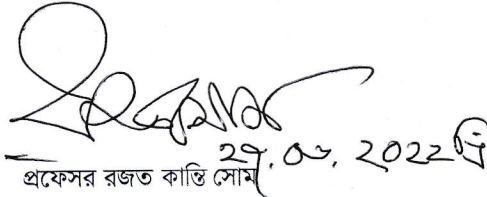 ২৭.০৩.২০২২
প্রফেসর রজত কান্তি সোম